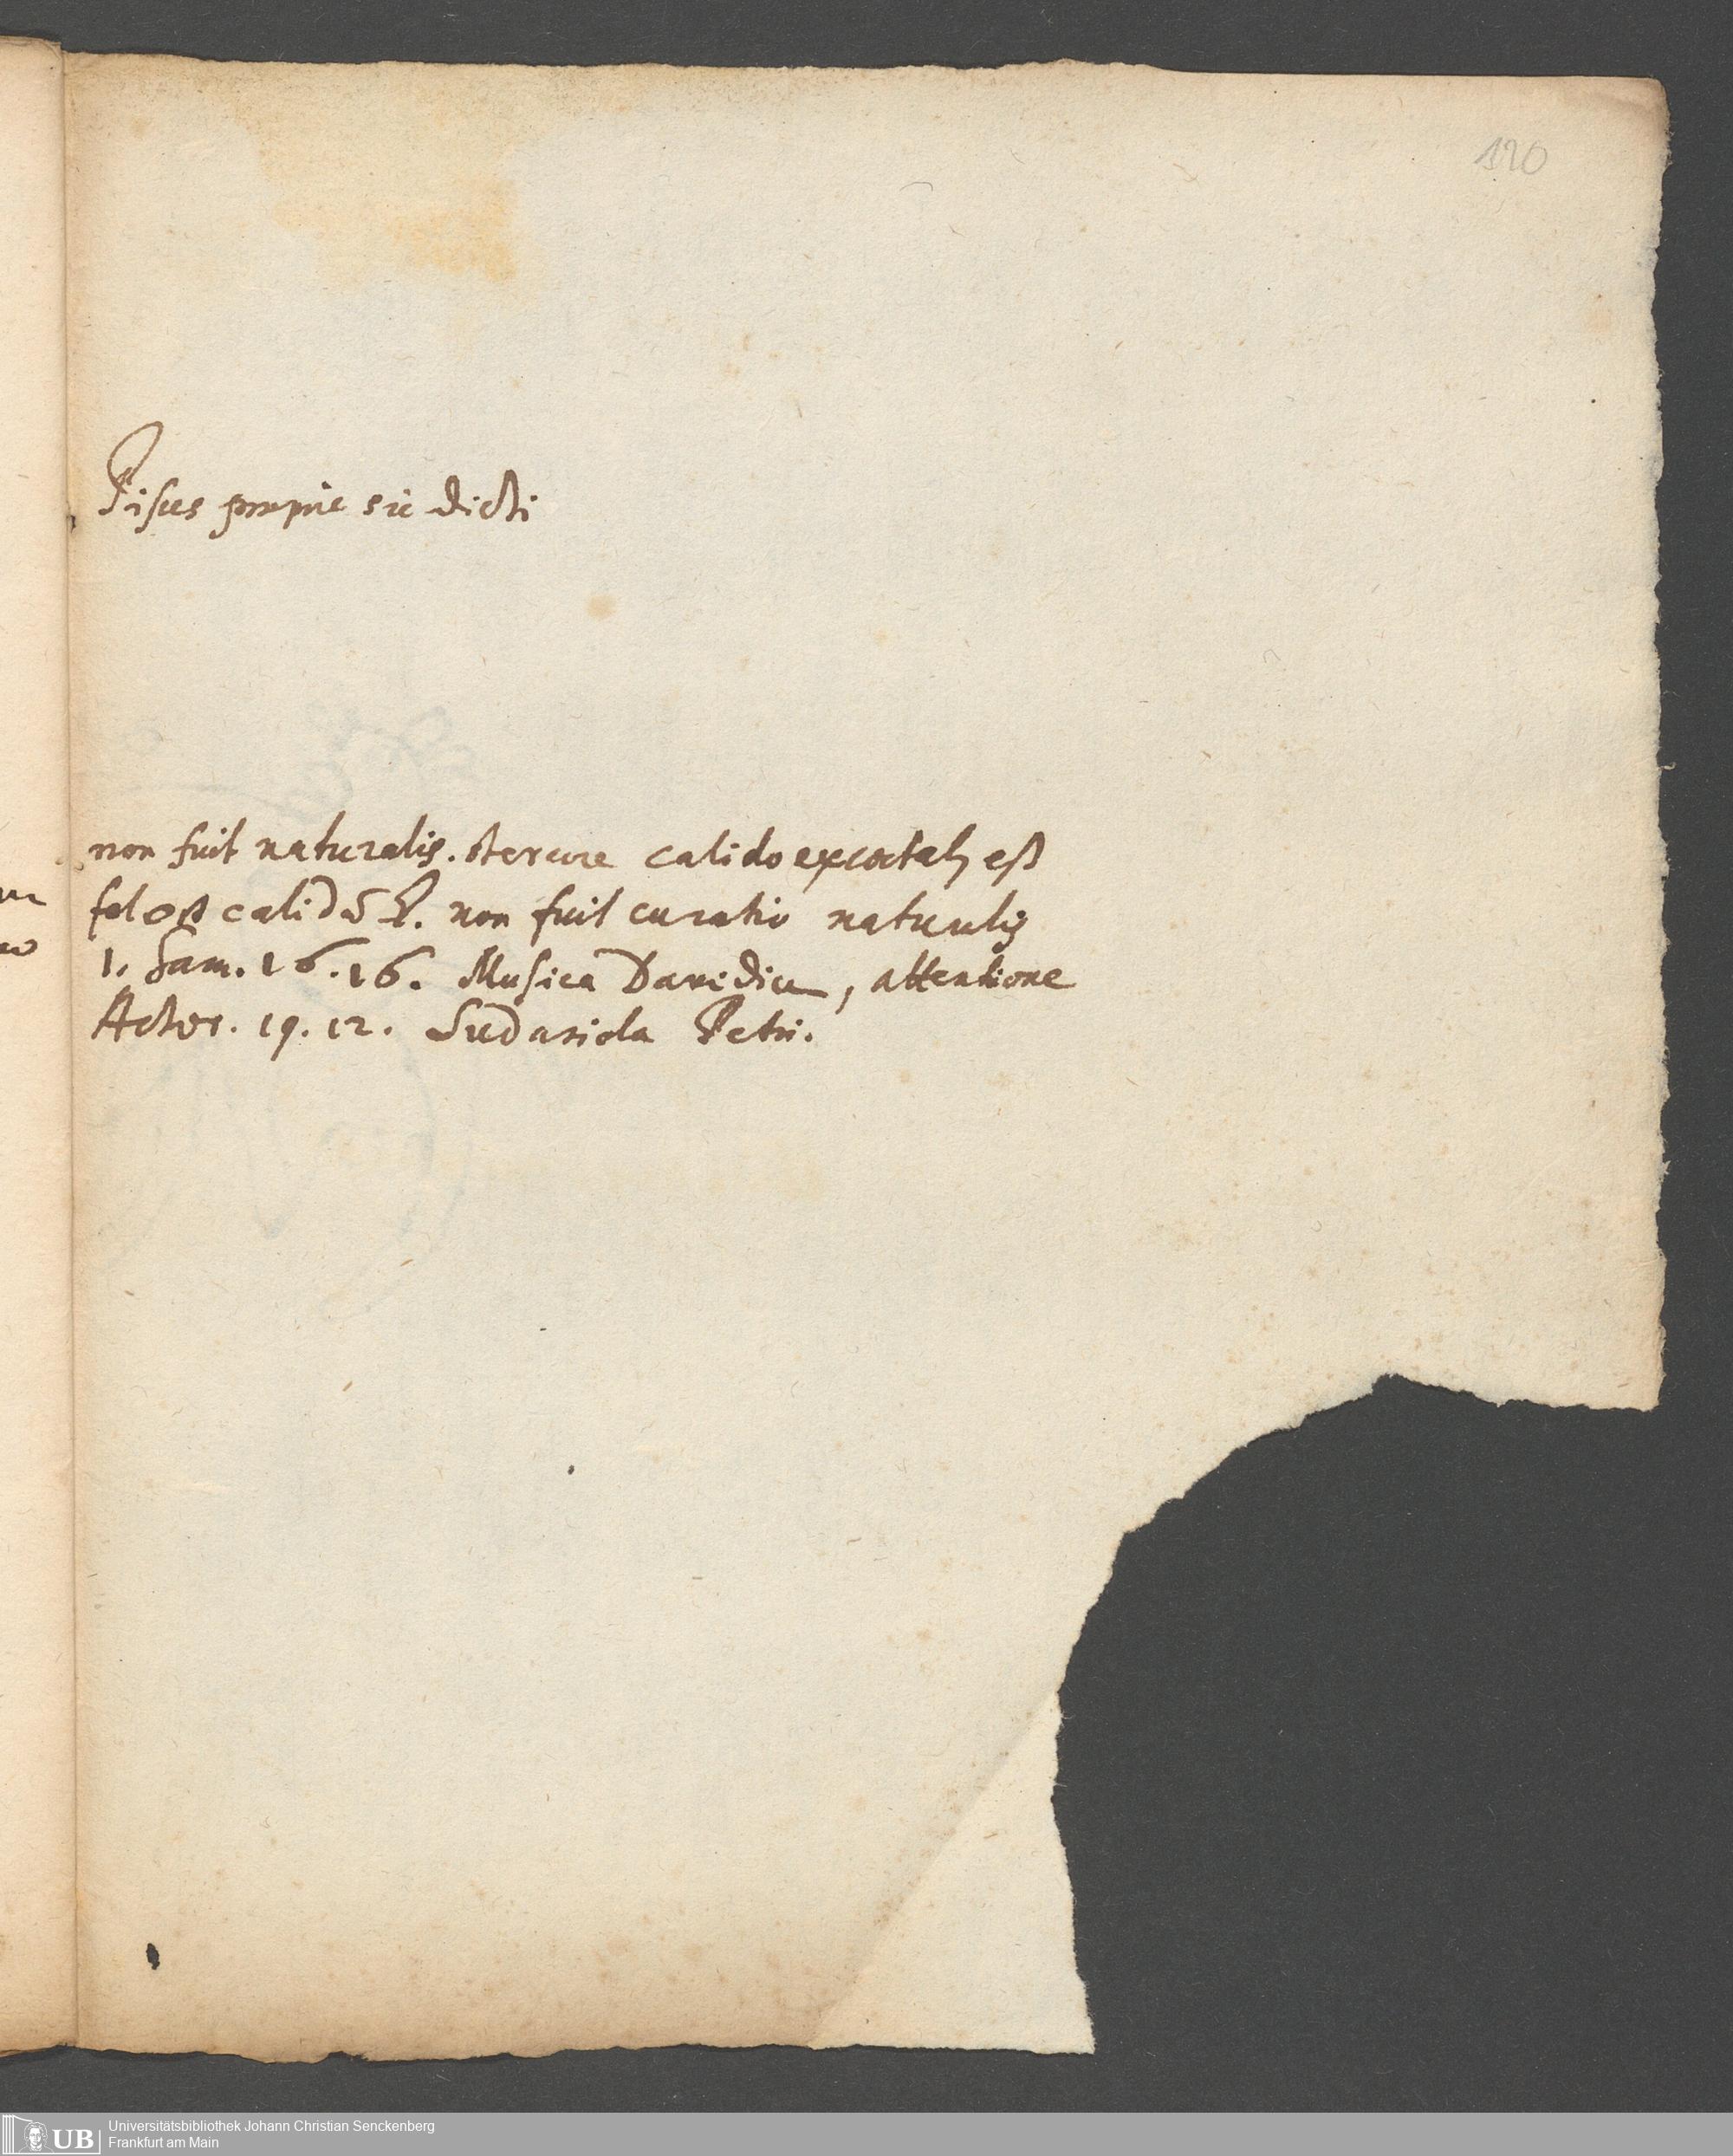 120
Pisces proprie sic dicti
non fuit naturalis. stercore calido excoctaḥ est
fel est calidū . non fuit curatio naturalis
1. Sam. 16.16. Musica Davidica, attentione
Actor. 19.12. Sudariola Petri.
UB Universitätsbibliothek Johann Christian Senckenberg
Frankfurt am Main